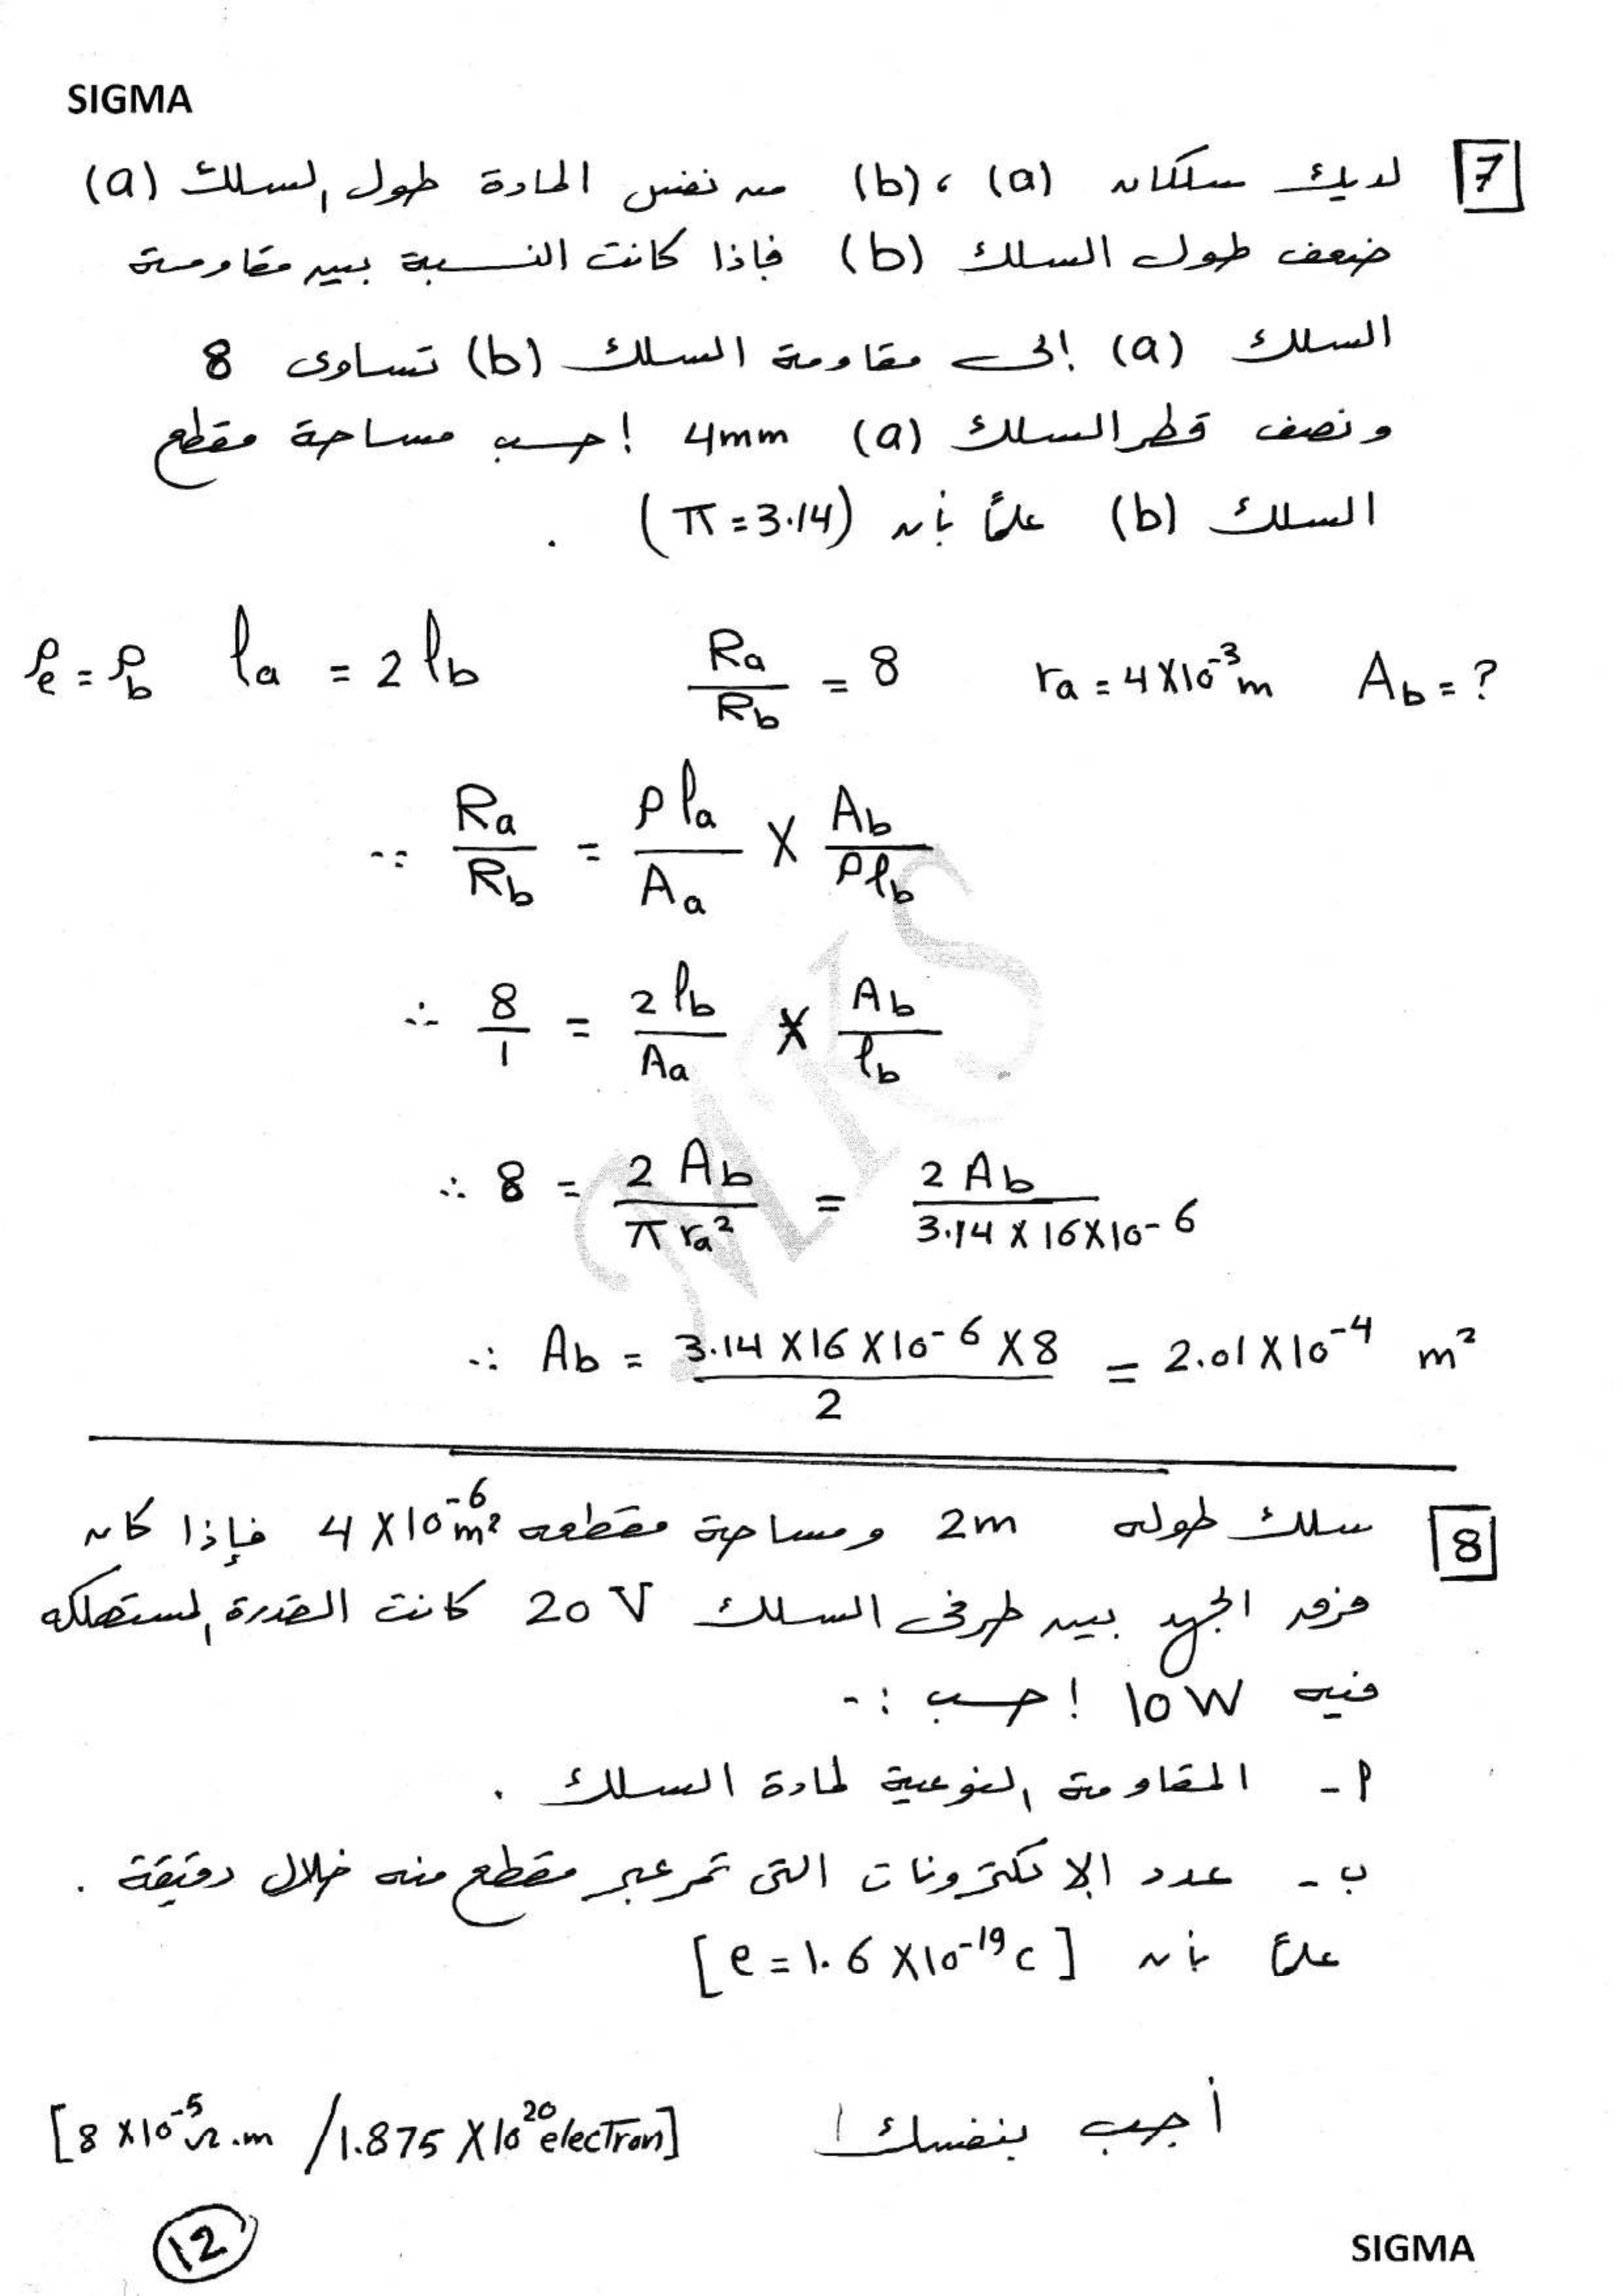 SIGMA
7 لديك سلكان (a) ، (b) من نفس المادة طول السلك (a)
ضعف طول السلك (b) فإذا كانت النسبة بين مقاومة
السلك (a) إلى مقاومة السلك (b) تساوى 8
ونصف قطر السلك (a) 4mm إحسب مساحة مقطع
السلك (b) علماً بأن (π = 3.14) .
ρe = ρb la = 2 lb Ra/Rb = 8 ra = 4X10^-3 m Ab = ?
∵ Ra/Rb = ρ la/Aa X Ab/ρ lb
∴ 8/1 = 2 lb/Aa X Ab/lb
∴ 8 = 2 Ab/π ra² = 2 Ab/3.14 X 16X10^-6
∴ Ab = 3.14 X16 X10^-6 X8/2 = 2.01X10^-4 m²
MKS
8 سلك طوله 2m ومساحة مقطعه 4 X10^-6 m² فإذا كان
فرق الجهد بين طرفى السلك 20 V كانت القدرة المستهلكه
فيه 10W إحسب :-
أ - المقاومة النوعية لمادة السلك .
ب - عدد الإلكترونات التى تمر عبر مقطع منه خلال دقيقة .
علماً بأن [e = 1.6 X10^-19 c]
أجب بنفسك ! [8 X10^-5 Ω.m / 1.875 X10^20 electron]
12
SIGMA